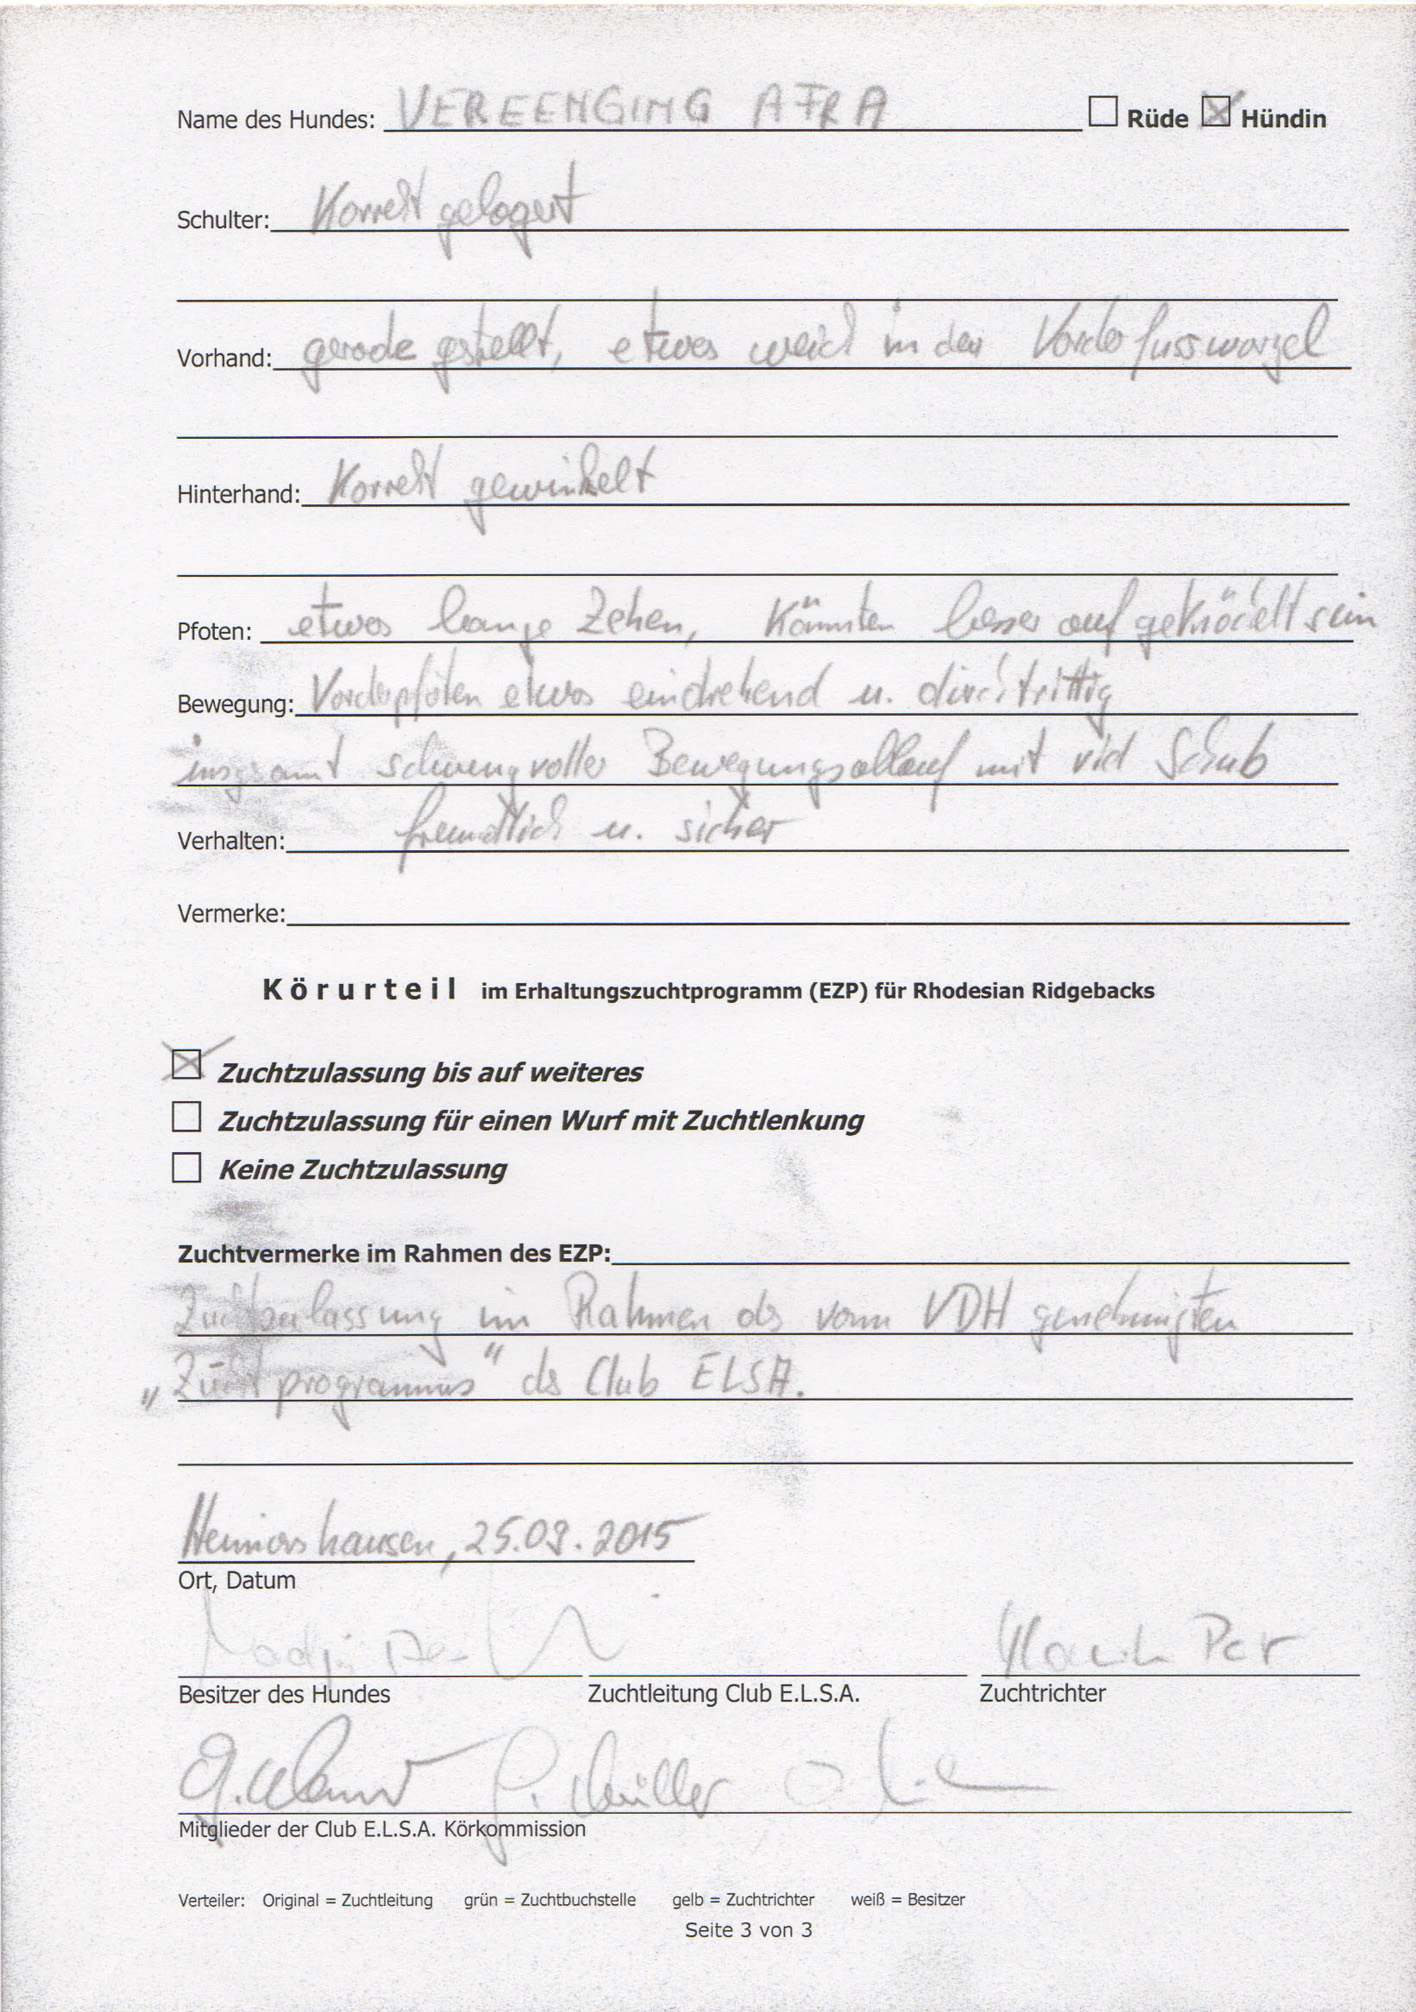 Name des Hundes: VEREENGING AFRA ☐ Rüde ☒ Hündin
Schulter: Korrekt gelagert
Vorhand: gerade gestellt, etwas weich in den Vorderfusswurzel
Hinterhand: Korrekt gewinkelt
Pfoten: etwas lange Zehen, könnten besser aufgeknödelt sein
Bewegung: Vorderpfoten etwas eindrehend u. durchtrittig
insgsamt schwungvoller Bewegungsablauf mit viel Schub
Verhalten: freundlich u. sicher
Vermerke:
Körurteil im Erhaltungszuchtprogramm (EZP) für Rhodesian Ridgebacks
☒ Zuchtzulassung bis auf weiteres
☐ Zuchtzulassung für einen Wurf mit Zuchtlenkung
☐ Keine Zuchtzulassung
Zuchtvermerke im Rahmen des EZP:
Zuchtzulassung im Rahmen des vom VDH genehmigten
„Zuchtprogramms“ des Club ELSA.
25.09.2015
Ort, Datum
Besitzer des Hundes Zuchtleitung Club E.L.S.A. Zuchtrichter
Müller
Mitglieder der Club E.L.S.A. Körkommission
Verteiler: Original = Zuchtleitung grün = Zuchtbuchstelle gelb = Zuchtrichter weiß = Besitzer
Seite 3 von 3